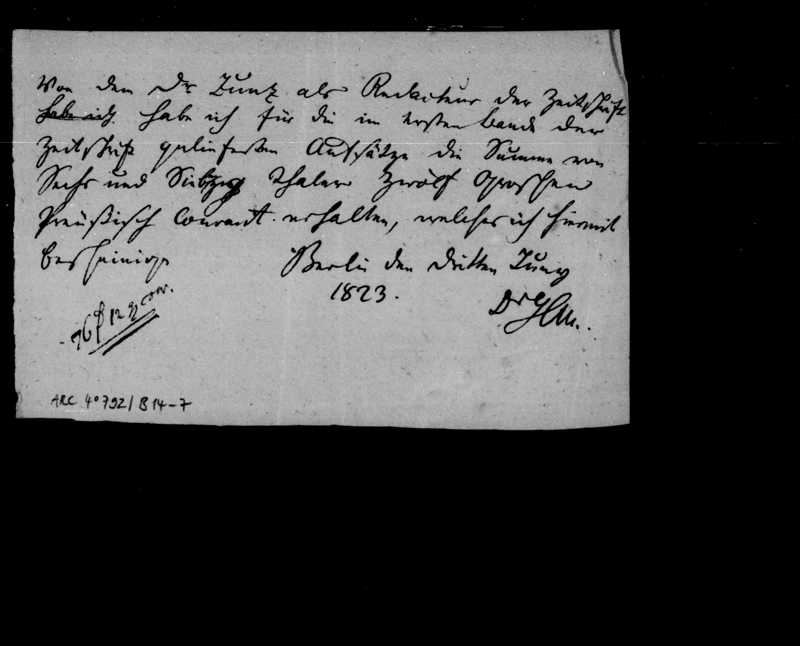 Von dem Dr Zunz als Redacteur der Zeitschrift
habe ich habe ich für die im ersten Bande der
Zeitschrift gelieferten Aufsätze die Summe von
Sechs und Siebzig Thaler Zwölf Groschen
Preußisch Courant erhalten, welches ich hiermit
bescheinige
Berlin den dritten Juny
1823.
Dr
76 12
ARC 4° 792/B14-7